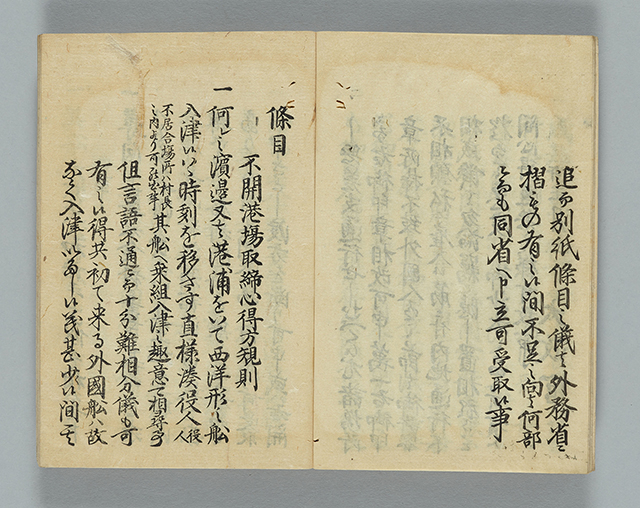 追而別紙條目之儀者外務省ニ
摺もの有之候間不足之向者何部
ニ而も同省へ申立可受取候事
條目
不開港場取締心得方規則
一何レ之濱邊又者港浦ニおいて西洋形之舩
入津候ハヽ時刻を移さす直様湊役人役人
不居合場所ハ村長之内より可罷出事其舩へ乗組入津之趣意を相尋可申
但言語不通ニ而十分難相分儀も可
有之候得共初て来る外國舩ハ故
なく入津いたし候義甚少く候間其